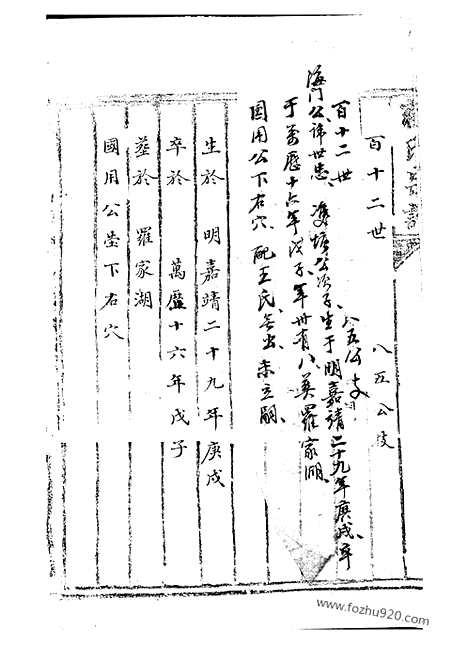 百十二世
八五公支
百十二世 八五公支
海门公讳世忠、双塘公次子、生于明嘉靖二十九年庚戌、卒
于万历十六年戊子、年卅有八、葬罗家湖、
国用公下右穴、配王氏、无出、未立嗣、
生於 明嘉靖二十九年庚戌
卒於 萬曆十六年戊子
葬於 羅家湖
國用公塋下右穴
www.fozhu920.com